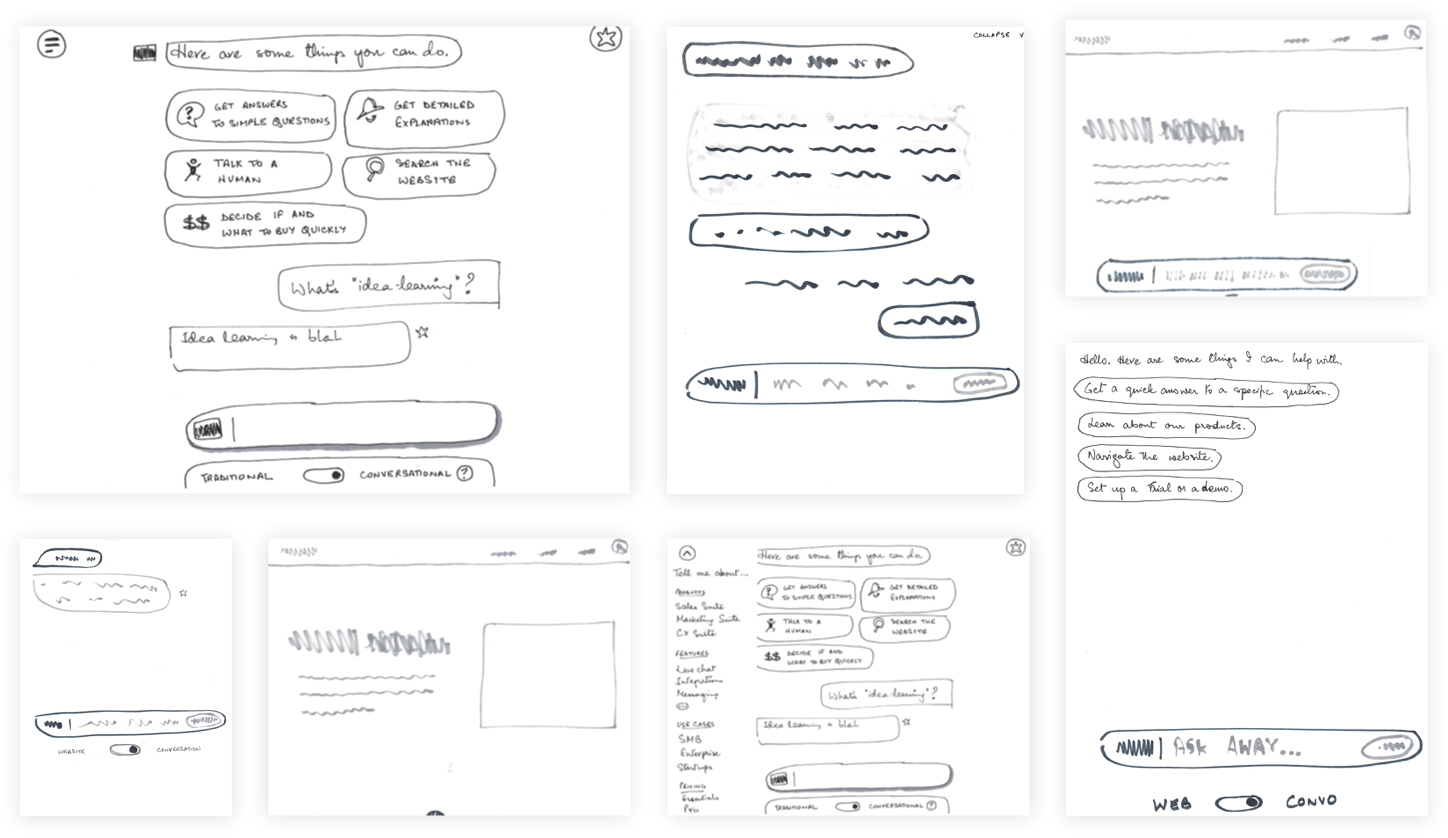 Here are some things you can do.
GET ANSWERS
TO SIMPLE QUESTIONS
GET DETAILED
EXPLANATIONS
TALK TO A
HUMAN
SEARCH THE
WEBSITE
$$ DECIDE IF AND
WHAT TO BUY QUICKLY
What's "idea-learning"?
Idea learning is blah
TRADITIONAL CONVERSATIONAL ?
COLLAPSE V
Hello. Here are some things I can help with.
Get a quick answer to a specific question.
Learn about our products.
Navigate the website.
Set up a Trial or a demo.
ASK AWAY...
WEB CONVO
WEBSITE CONVERSATION
Here are some things you can do.
Tell me about...
PRODUCTS
Sales Suite
Marketing Suite
CX Suite
FEATURES
Live chat
Integrations
Messaging
USE CASES
SMB
Enterprise
Startups
PRICING
Essentials
Pro
GET ANSWERS
TO SIMPLE QUESTIONS
GET DETAILED
EXPLANATIONS
TALK TO A
HUMAN
SEARCH THE
WEBSITE
$$ DECIDE IF AND
WHAT TO BUY QUICKLY
What's "idea-learning"?
Idea learning is blah
TRADITIONAL CONVERSATIONAL ?